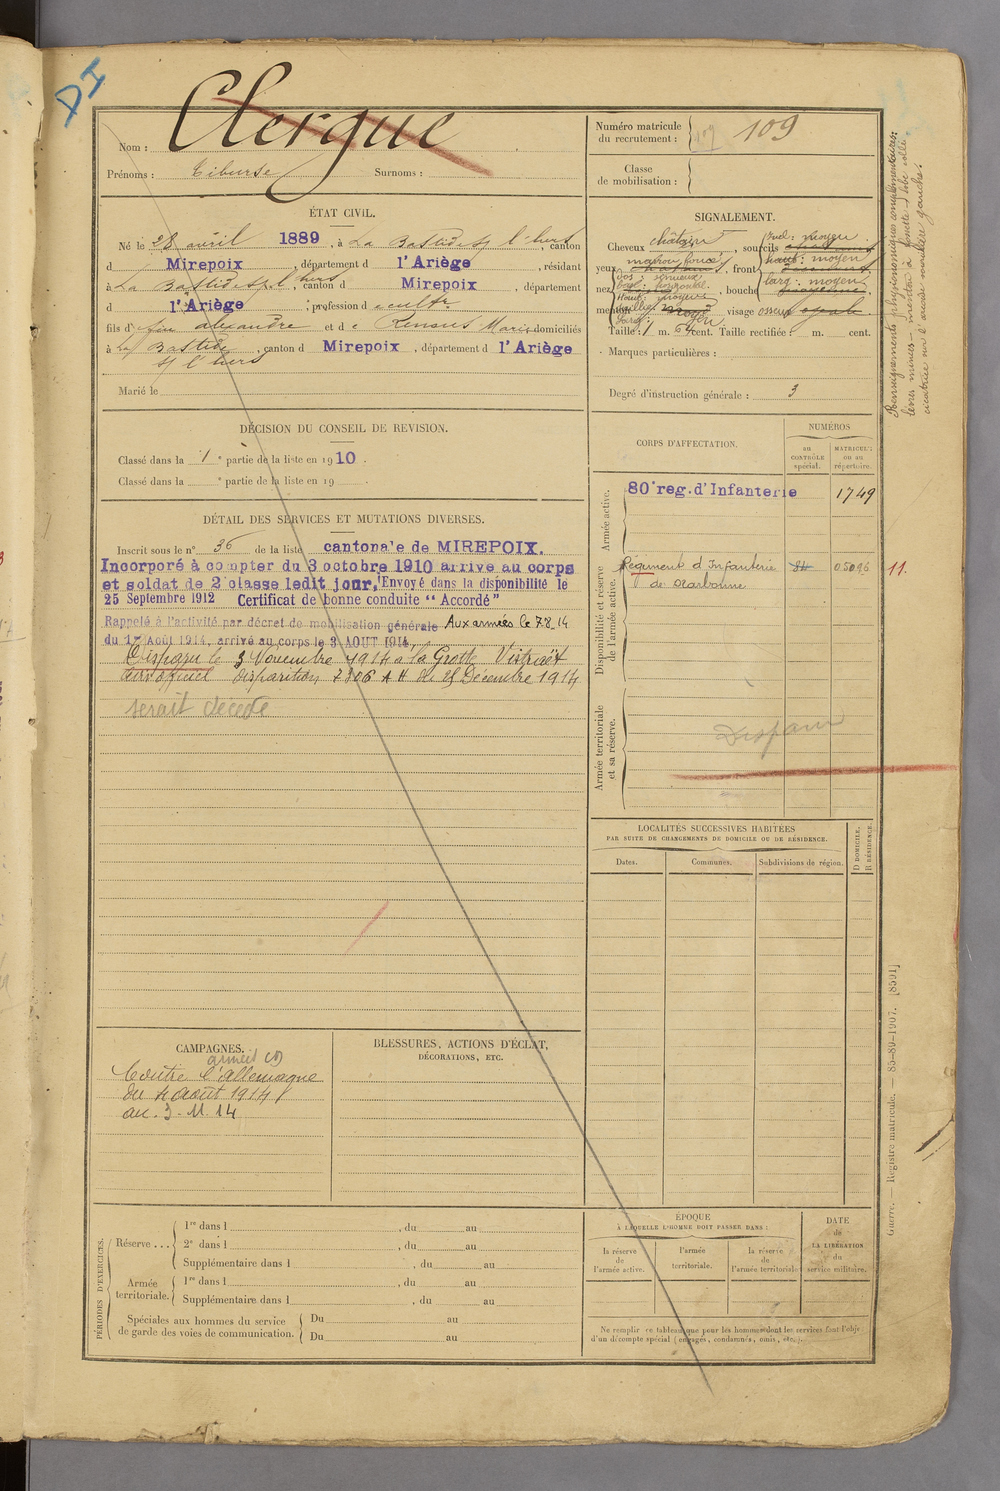 DI
Nom : Clergue
Prénoms : Tiburse Surnoms :
Numéro matricule du recrutement : 109 109
Classe de mobilisation :
ÉTAT CIVIL.
Né le 28 avril 1889, à La Bastide s/ l'hers, canton
d Mirepoix, département d l'Ariège, résidant
à La Bastide s/ l'hers, canton d Mirepoix, département
d l'Ariège, profession d cultr
fils d' feu alexandre et d e Renous Marie domiciliés
à La Bastide s/ l'hers, canton d Mirepoix, département d l'Ariège
Marié le
SIGNALEMENT.
Cheveux châtain, sourcils
yeux marron foncé, front incl: moyen haut: moyen larg: moyen
nez dos: sinueux base: horizontal haut: moyen saillie larg: moyen, bouche
menton visage osseux
Taille : 1 m. 64 cent. Taille rectifiée m. cent.
Marques particulières :
Degré d'instruction générale : 3
Renseignements physionomiques complémentaires:
lèvres minces - menton à fossette - lobe collé
cicatrice sur l'arcade sourcilière gauche.
DÉCISION DU CONSEIL DE REVISION.
Classé dans la 1e partie de la liste en 1910.
Classé dans la e partie de la liste en 19
DÉTAIL DES SERVICES ET MUTATIONS DIVERSES.
Inscrit sous le n° 36 de la liste cantonale de MIREPOIX.
Incorporé à compter du 3 octobre 1910 arrive au corps
et soldat de 2e classe ledit jour, Envoyé dans la disponibilité le
25 Septembre 1912 Certificat de bonne conduite "Accordé"
Rappelé à l'activité par décret de mobilisation générale Aux armées le 7.8.14
du 1er Août 1914, arrivé au corps le 3 AOUT 1914.
Disparu le 3 Novembre 1914 à la Grotte
avis officiel disparition 2806 A H du 28 Décembre 1914
serait décédé
CORPS D'AFFECTATION.
NUMÉROS
au CONTRÔLE spécial.
MATRICULE ou au répertoire.
Armée active.
80e reg. d'Infanterie 1749
Disponibilité et réserve de l'armée active.
Régiment d'Infanterie de Narbonne 05096 11.
Armée territoriale et sa réserve.
Disparu
LOCALITÉS SUCCESSIVES HABITÉES
PAR SUITE DE CHANGEMENTS DE DOMICILE OU DE RÉSIDENCE.
Dates. Communes. Subdivisions de région. D DOMICILE. R RÉSIDENCE.
CAMPAGNES.
Contre l'Allemagne
du 4 août 1914
au 3-11-14
BLESSURES, ACTIONS D'ÉCLAT,
DÉCORATIONS, ETC.
PÉRIODES D'EXERCICES.
Réserve ... 1re dans l , du au
2e dans l , du au
Supplémentaire dans l , du au
Armée territoriale. 1re dans l , du au
Supplémentaire dans l , du au
Spéciales aux hommes du service de garde des voies de communication. Du au
Du au
ÉPOQUE
À LAQUELLE L'HOMME DOIT PASSER DANS :
la réserve de l'armée active.
l'armée territoriale.
la réserve de l'armée territoriale
DATE de LA LIBÉRATION du service militaire.
Ne remplir ce tableau que pour les hommes dont les services font l'objet
d'un décompte spécial (engagés, condamnés, omis, etc.).
Guerre. — Registre matricule. — 85-80-1907. [8591]